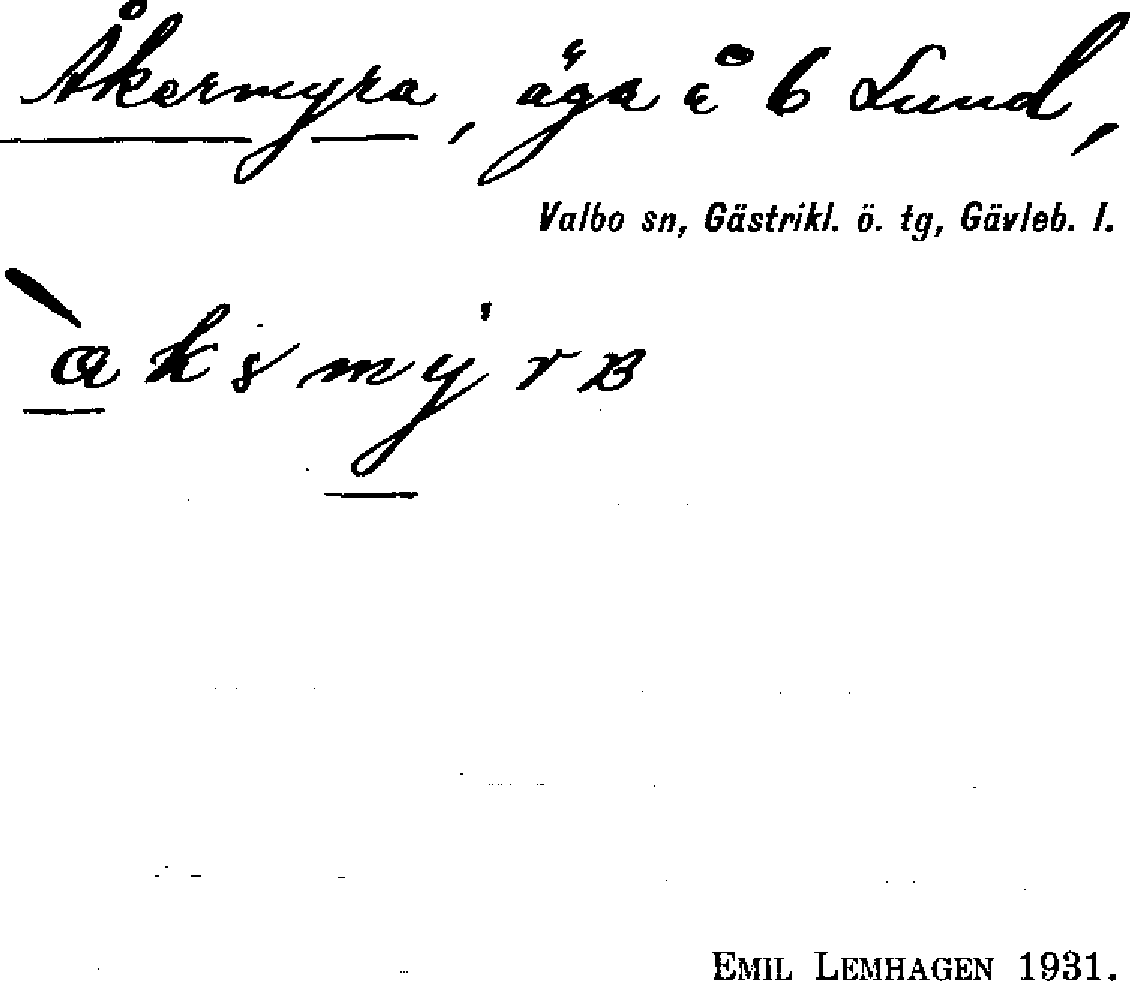 Åkermyra, äga å 6 Lund,
Valbo sn, Gästrikl. ö. tg, Gävleb. l.
EMIL LEMHAGEN 1931.